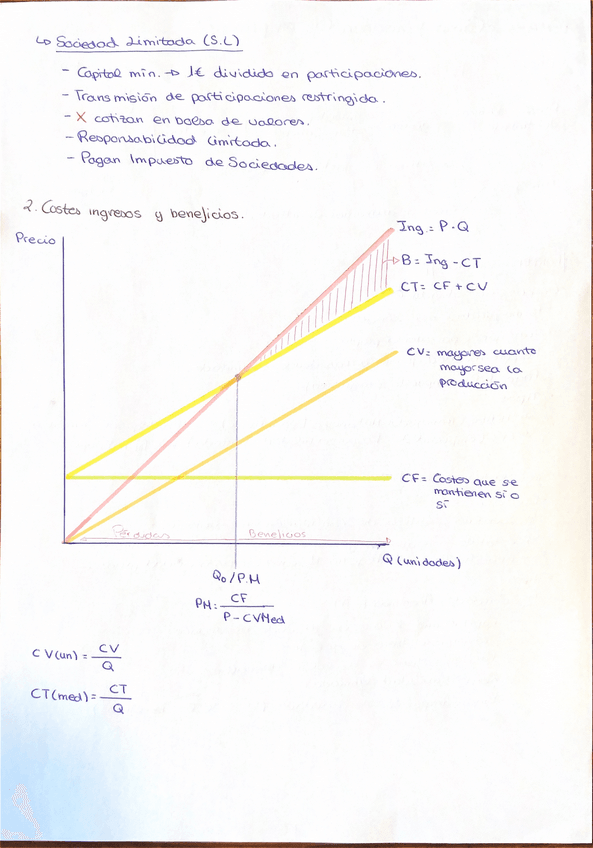 ↳ Sociedad Limitada (S.L)
- Capital mín. → 1€ dividido en participaciones.
- Transmisión de participaciones restringida.
- X cotizan en bolsa de valores.
- Responsabilidad Limitada.
- Pagan Impuesto de Sociedades.
2. Costes ingresos y beneficios.
Precio
Ing. = P·Q
→ B = Ing - CT
CT = CF + CV
CV = mayores cuanto
mayor sea la
producción
CF = Costes que se
mantienen si o
sí
Pérdidas Beneficios
Q (unidades)
Q₀ / P.M
PM: CF
P - CVMed
CV(un) = CV
Q
CT(med) = CT
Q